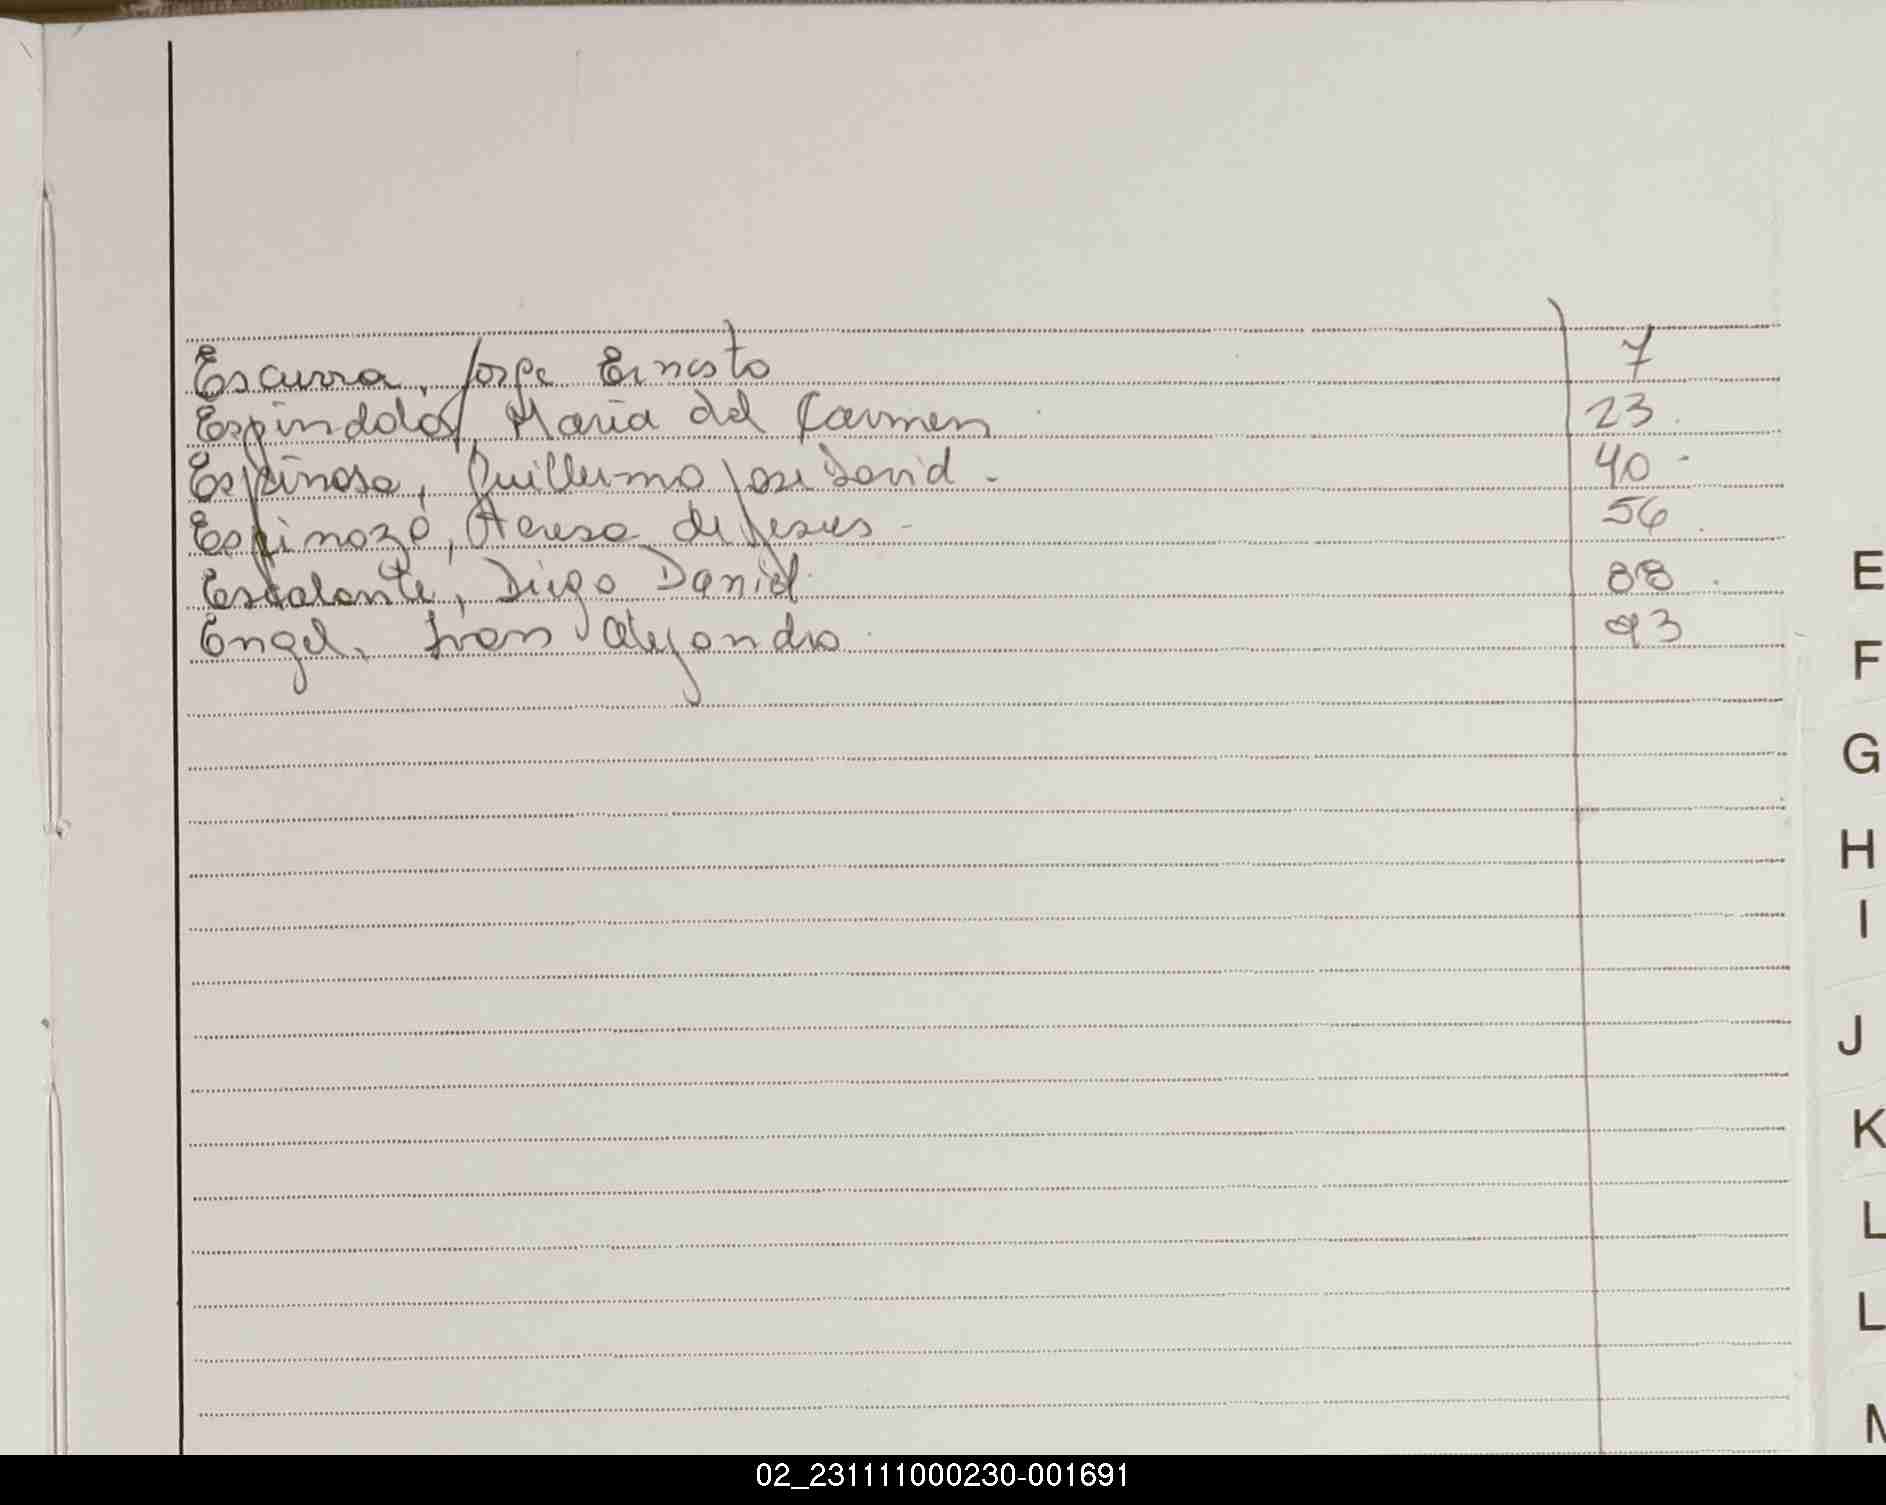 Escurra, Jorge Ernesto 7
Espindola, Maria del Carmen 23
Espinosa, Guillermo Jose David - 40 -
Espinoza, Teresa de Jesus - 56
Escalante, Diego Daniel 88
Engel, Ivan Alejandro 93
E
F
G
H
I
J
K
L
L
M
02_231111000230-001691